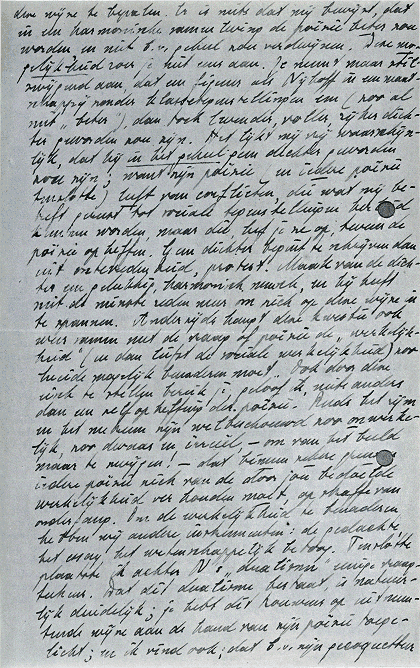 deze wijze te bepraten. Er is niets dat mij bewijst, dat
in een harmonische samenleving de poëzie beter zou
worden en niet b.v. geheel zou verdwijnen. Deze mo-
gelijkheid roer je niet eens aan. Je neemt maar stil-
zwijgend aan, dat een figuur als Nijhoff in een maat-
schappij zonder klassetegenstellingen een (zoo al
niet "beter"), dan toch voller, rijker dich-
ter geworden zou zijn. Het lijkt mij vrij waarschijn-
lijk, dat hij in het geheel geen dichter geworden
zou zijn; want zijn poëzie, en iedere poëzie
tenslotte) leeft van conflicten, die wat mij be-
treft gerust tot sociale tegenstellingen
kunnen worden, maar die, hef je ze op, tevens de
poëzie opheffen. Een dichter begint te schrijven dan
uit ontevredenheid, protest. Maak van de dich-
ter een gelukkig, harmonisch mensch, en hij heeft
niet de minste reden meer om zich op deze wijze in
te spannen. Anderzijds hangt deze kwestie ook
weer samen met de vraag of poëzie de "werkelijk-
heid" (en dan liefst de sociale werkelijkheid) zoo
breed mogelijk benaderen moet. Ook door deze
eisch te stellen bereik je, geloof ik, niets anders
dan een zelfopheffing der poëzie. Reeds het rijm
en het metrum zijn welbeschouwd zoo onwerke-
lijk, zoo dwaas en irreëel – om van het beeld
maar te zwijgen! – dat binnen zekere
iedere poëzie zich van de door jou bedoelde
werkelijkheid verhouden moet, op straffe van
ondergang. Om de werkelijkheid te benaderen
hebben wij andere instrumenten: de gedachte,
het essay, het wetenschappelijk betoog. Tenslotte
plaatste ik achter N.'s "dualisme" eenige vraag-
teekens. Dat dit dualisme bestaat, is natuur-
lijk duidelijk; je hebt dit trouwens op uitmun-
tende wijze aan de hand van zijn poëzie toege-
licht; en ik vind ook, dat b.v. zijn